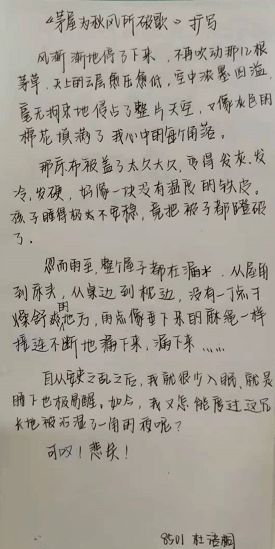 《茅屋为秋风所破歌》扩写
风渐渐地停了下来，不再吹动那几根
茅草，天上的云层愈压愈低，空中浓墨四溢，
毫无拘束地侵占了整片天空，又像灰色的
棉花填满了我心中的每个角落。
那床布被盖了太久太久，变得发灰、发
冷、发硬，好像一块没有温度的铁皮。
孩子睡得极太不安稳，竟把被子都蹬破
了。
忽而雨至，整个屋子都在漏水，从屋角
到床头，从桌边到枕边，没有一点干
燥舒爽的地方，雨点像垂下来的麻绳一样
接连不断地漏下来，漏下来……
自从安史之乱之后，我就很少入眠，就是
睡下也极易醒。如今，我又怎能度过这冗
长地被雨湿了一角的夜呢？
可叹！悲矣！
8501 杜语桐